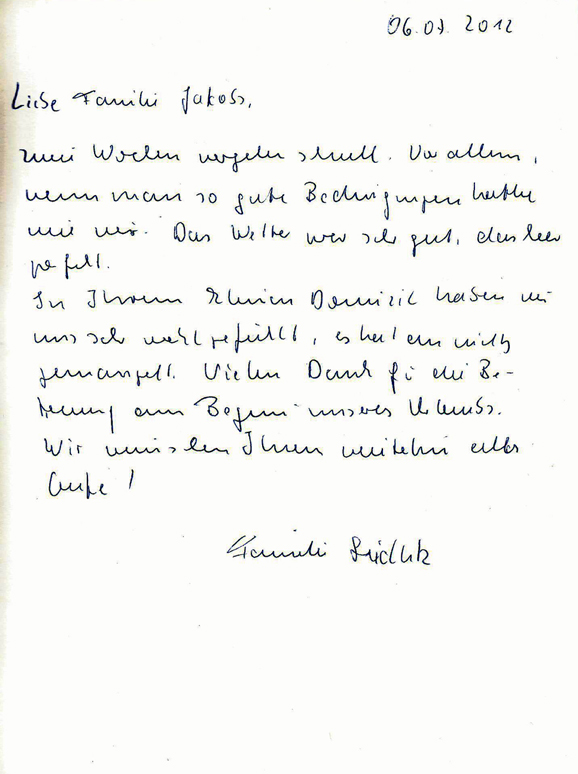 06.07.2012
Liebe Familie Jakobs,
zwei Wochen vergehen schnell. Vor allem,
wenn man so gute Bedingungen hatte
wie wir. Das Wetter war sehr gut, das Meer
gefüllt.
In Ihrem kleinen Domizil haben wir
uns sehr wohl gefühlt, es hat an nichts
gemangelt. Vielen Dank für die Be-
treuung am Beginn unseres Urlaubs.
Wir wünschen Ihnen weiterhin alles
Gute!
Familie